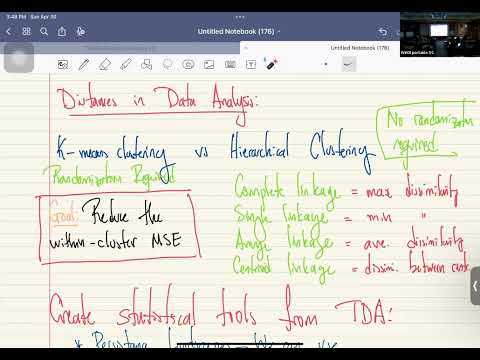 3:48 PM Sun Apr 30
Untitled Notebook (176)
Untitled Notebook (176)
Distances in Data Analysis:
No randomization
required
K-means clustering vs Hierarchical Clustering
Randomization Required
Goal: Reduce the
within-cluster MSE
Complete linkage = max dissimilarity
Single linkage = min "
Average linkage = ave. dissimilarity
Centroid linkage = dissimi. between
Create statistical tools from TDA:
* Persistence Landscapes